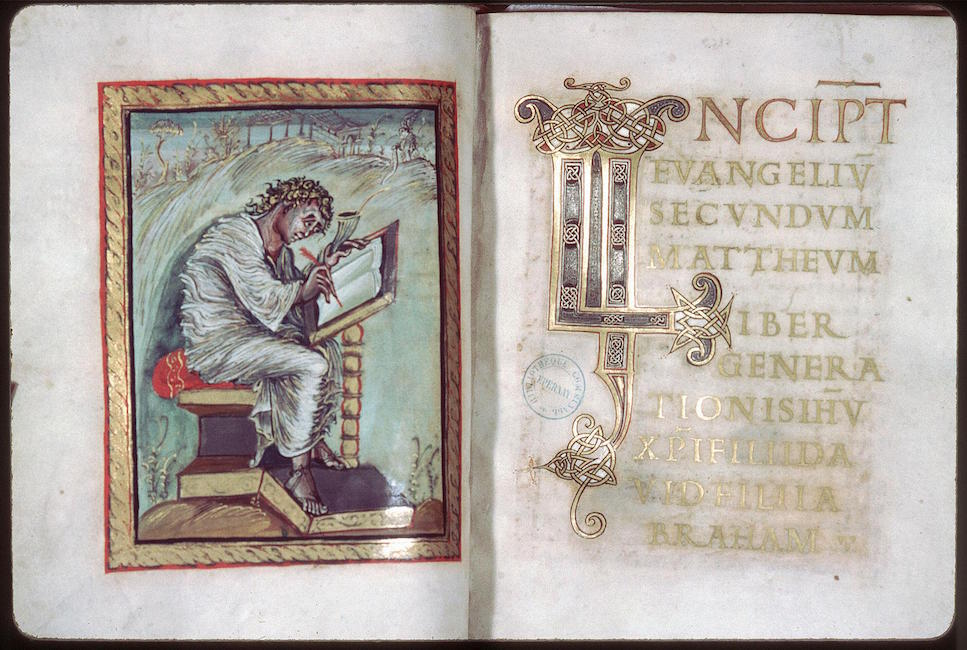 INCIP̄T
EVANGELIV̄
SECVNDVM
MATTHEVM
LIBER
GENERA
TIONISIHV̄
XP̄IFILIIDA
VIDFILIIA
BRAHAM
BIBLIOTHEQUE COMMUNALE
EPERNAY